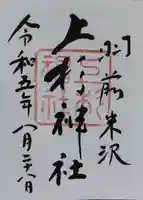 羽前米沢
上杉神社
令和五年八月二十八日